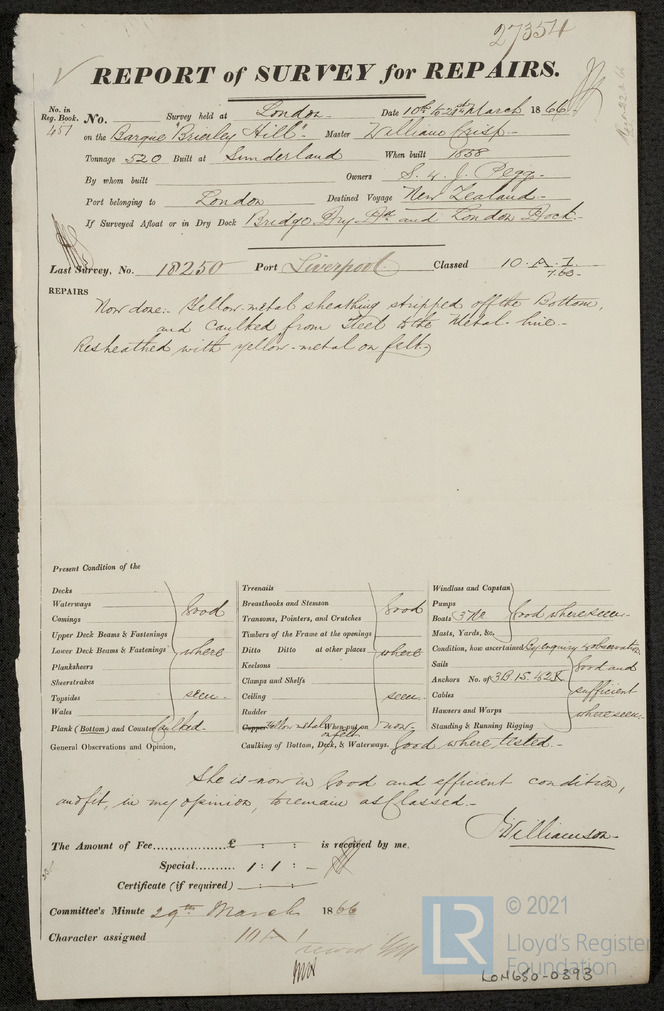 27354
REPORT of SURVEY for REPAIRS.
No. in Reg. Book. No. Survey held at London Date 10th to 24th March 1866
451 on the Barque "Brierley Hill" Master William Crisp
Tonnage 520 Built at Sunderland When built 1858
By whom built Owners S. & J. Pegg
Port belonging to London Destined Voyage New Zealand
If Surveyed Afloat or in Dry Dock Bridge Dry Dk and London Dock
Last Survey, No. 18250 Port Liverpool Classed 10 A.1.
7.60
REPAIRS
Now done:- Yellow metal sheathing stripped off the Bottom,
and Caulked from Keel to the Metal-line.-
Resheathed with yellow-metal on felt.
Present Condition of the
Decks
Waterways
Comings
Upper Deck Beams & Fastenings
Lower Deck Beams & Fastenings
Planksheers
Sheerstrakes
Topsides
Wales
Good
where
seen
Plank (Bottom) and Counter Caulked
General Observations and Opinion,
Treenails
Breasthooks and Stemson
Transoms, Pointers, and Crutches
Timbers of the Frame at the openings
Ditto Ditto at other places
Keelsons
Clamps and Shelfs
Ceiling
Rudder
Good
where
seen
Copper Yellow metal on felt When put on now
Caulking of Bottom, Deck, & Waterways. Good where tested.-
Windlass and Capstan
Pumps
Boats 3 No
Masts, Yards, &c.
Good where seen
Condition, how ascertained By enquiry & observation
Sails
Anchors No. of 3B. 1S. 42K
Cables
Hawsers and Warps
Standing & Running Rigging
Good and
sufficient
where seen
She is now in Good and efficient condition,
and fit, in my opinion, to remain as Classed.-
J Williamson
The Amount of Fee £ : : is received by me,
Special 1 : 1 : -
Certificate (if required)
Committee's Minute 29th March 1866
Character assigned 10 A 1
© 2021
LR
Lloyd's Register
Foundation
LON650-0393